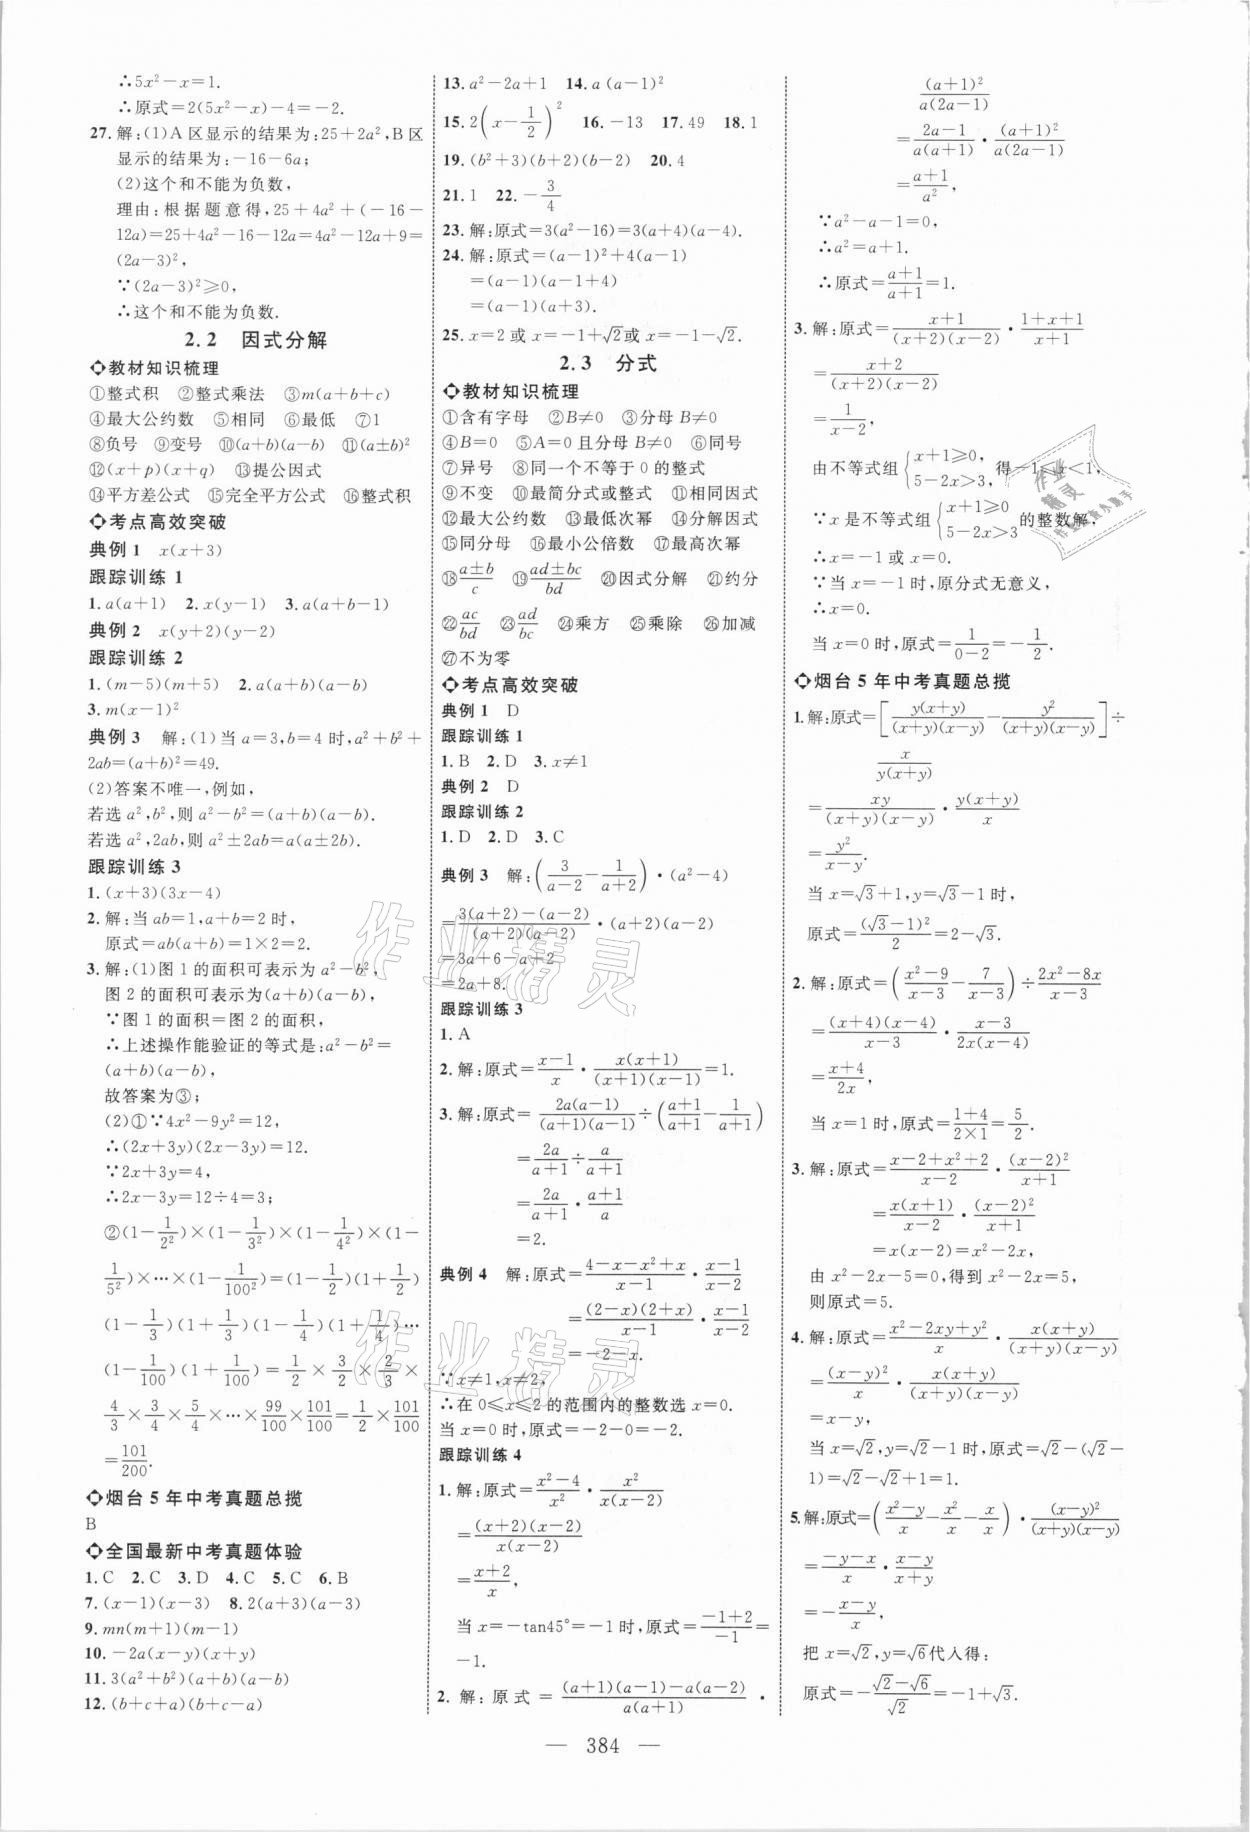 ∴5x²－x=1.
∴原式=2(5x²－x)－4=－2.
27.解:(1)A区显示的结果为:25+2a²,B区
显示的结果为:－16－6a;
(2)这个和不能为负数,
理由:根据题意得,25+4a²+(－16－
12a)=25+4a²－16－12a=4a²－12a+9=
(2a－3)²,
∵(2a－3)²≥0,
∴这个和不能为负数.
2.2 因式分解
◇教材知识梳理
①整式积 ②整式乘法 ③m(a+b+c)
④最大公约数 ⑤相同 ⑥最低 ⑦1
⑧负号 ⑨变号 ⑩(a+b)(a－b) ⑪(a±b)²
⑫(x+p)(x+q) ⑬提公因式
⑭平方差公式 ⑮完全平方公式 ⑯整式积
◇考点高效突破
典例1 x(x+3)
跟踪训练1
1.a(a+1) 2.x(y－1) 3.a(a+b－1)
典例2 x(y+2)(y－2)
跟踪训练2
1.(m－5)(m+5) 2.a(a+b)(a－b)
3.m(x－1)²
典例3 解:(1)当a=3,b=4时,a²+b²+
2ab=(a+b)²=49.
(2)答案不唯一,例如,
若选a²,b²,则a²－b²=(a+b)(a－b).
若选a²,2ab,则a²±2ab=a(a±2b).
跟踪训练3
1.(x+3)(3x－4)
2.解:当ab=1,a+b=2时,
原式=ab(a+b)=1×2=2.
3.解:(1)图1的面积可表示为a²－b²,
图2的面积可表示为(a+b)(a－b),
∵图1的面积=图2的面积,
∴上述操作能验证的等式是:a²－b²=
(a+b)(a－b),
故答案为③;
(2)①∵4x²－9y²=12,
∴(2x+3y)(2x－3y)=12.
∵2x+3y=4,
∴2x－3y=12÷4=3;
②(1－1/2²)×(1－1/3²)×(1－1/4²)×(1－
1/5²)×…×(1－1/100²)=(1－1/2)(1+1/2)
(1－1/3)(1+1/3)(1－1/4)(1+1/4)…
(1－1/100)(1+1/100)=1/2×3/2×2/3×
4/3×3/4×5/4×…×99/100×101/100=1/2×101/100
=101/200.
◇烟台5年中考真题总揽
B
◇全国最新中考真题体验
1.C 2.C 3.D 4.C 5.C 6.B
7.(x－1)(x－3) 8.2(a+3)(a－3)
9.mn(m+1)(m－1)
10.－2a(x－y)(x+y)
11.3(a²+b²)(a+b)(a－b)
12.(b+c+a)(b+c－a)
13.a²－2a+1 14.a(a－1)²
15.2(x－1/2)² 16.－13 17.49 18.1
19.(b²+3)(b+2)(b－2) 20.4
21.1 22.－3/4
23.解:原式=3(a²－16)=3(a+4)(a－4).
24.解:原式=(a－1)²+4(a－1)
=(a－1)(a－1+4)
=(a－1)(a+3).
25.x=2或x=－1+√2或x=－1－√2.
2.3 分式
◇教材知识梳理
①含有字母 ②B≠0 ③分母B≠0
④B=0 ⑤A=0且分母B≠0 ⑥同号
⑦异号 ⑧同一个不等于0的整式
⑨不变 ⑩最简分式或整式 ⑪相同因式
⑫最大公约数 ⑬最低次幂 ⑭分解因式
⑮同分母 ⑯最小公倍数 ⑰最高次幂
⑱(a±b)/c ⑲(ad±bc)/bd ⑳因式分解 ㉑约分
㉒ac/bd ㉓ad/bc ㉔乘方 ㉕乘除 ㉖加减
㉗不为零
◇考点高效突破
典例1 D
跟踪训练1
1.B 2.D 3.x≠1
典例2 D
跟踪训练2
1.D 2.D 3.C
典例3 解:(3/(a－2)－1/(a+2))·(a²－4)
=(3(a+2)－(a－2))/((a+2)(a－2))·(a+2)(a－2)
=3a+6－a+2
=2a+8.
跟踪训练3
1.A
2.解:原式=(x－1)/x·x(x+1)/((x+1)(x－1))=1.
3.解:原式=2a(a－1)/((a+1)(a－1))÷((a+1)/(a+1)－1/(a+1))
=2a/(a+1)÷a/(a+1)
=2a/(a+1)·(a+1)/a
=2.
典例4 解:原式=(4－x－x²+x)/(x－1)·(x－1)/(x－2)
=(2－x)(2+x)/(x－1)·(x－1)/(x－2)
=－2－x.
∵x≠1,x≠2,
∴在0≤x≤2的范围内的整数选x=0.
当x=0时,原式=－2－0=－2.
跟踪训练4
1.解:原式=(x²－4)/x²·x²/(x(x－2))
=(x+2)(x－2)/(x(x－2))
=(x+2)/x,
当x=－tan45°=－1时,原式=(－1+2)/(－1)=
－1.
2.解:原式=((a+1)(a－1)－a(a－2))/(a(a+1))·
(a+1)²/(a(2a－1))
=(2a－1)/(a(a+1))·(a+1)²/(a(2a－1))
=(a+1)/a²,
∵a²－a－1=0,
∴a²=a+1.
∴原式=(a+1)/(a+1)=1.
3.解:原式=(x+1)/((x+2)(x－2))·(1+x+1)/(x+1)
=(x+2)/((x+2)(x－2))
=1/(x－2),
由不等式组{x+1≥0, 5－2x>3,得－1≤x<1,
∵x是不等式组{x+1≥0 5－2x>3的整数解,
∴x=－1或x=0.
∵当x=－1时,原分式无意义,
∴x=0.
当x=0时,原式=1/(0－2)=－1/2.
◇烟台5年中考真题总揽
1.解:原式=[y(x+y)/((x+y)(x－y))－y²/((x+y)(x－y))]÷
x/(y(x+y))
=xy/((x+y)(x－y))·y(x+y)/x
=y²/(x－y).
当x=√3+1,y=√3－1时,
原式=(√3－1)²/2=2－√3.
2.解:原式=((x²－9)/(x－3)－7/(x－3))÷(2x²－8x)/(x－3)
=(x+4)(x－4)/(x－3)·(x－3)/(2x(x－4))
=(x+4)/2x,
当x=1时,原式=(1+4)/(2×1)=5/2.
3.解:原式=(x－2+x²+2)/(x－2)·(x－2)²/(x+1)
=x(x+1)/(x－2)·(x－2)²/(x+1)
=x(x－2)=x²－2x,
由x²－2x－5=0,得到x²－2x=5,
则原式=5.
4.解:原式=(x²－2xy+y²)/x·x(x+y)/((x+y)(x－y))
=(x－y)²/x·x(x+y)/((x+y)(x－y))
=x－y,
当x=√2,y=√2－1时,原式=√2－(√2－
1)=√2－√2+1=1.
5.解:原式=((x²－y)/x－x²/x－x/x)·(x－y)²/((x+y)(x－y))
=(－y－x)/x·(x－y)/(x+y)
=－(x－y)/x,
把x=√2,y=√6代入得:
原式=－(√2－√6)/√2=－1+√3.
— 384 —
作业精灵
作业精灵
作业精灵